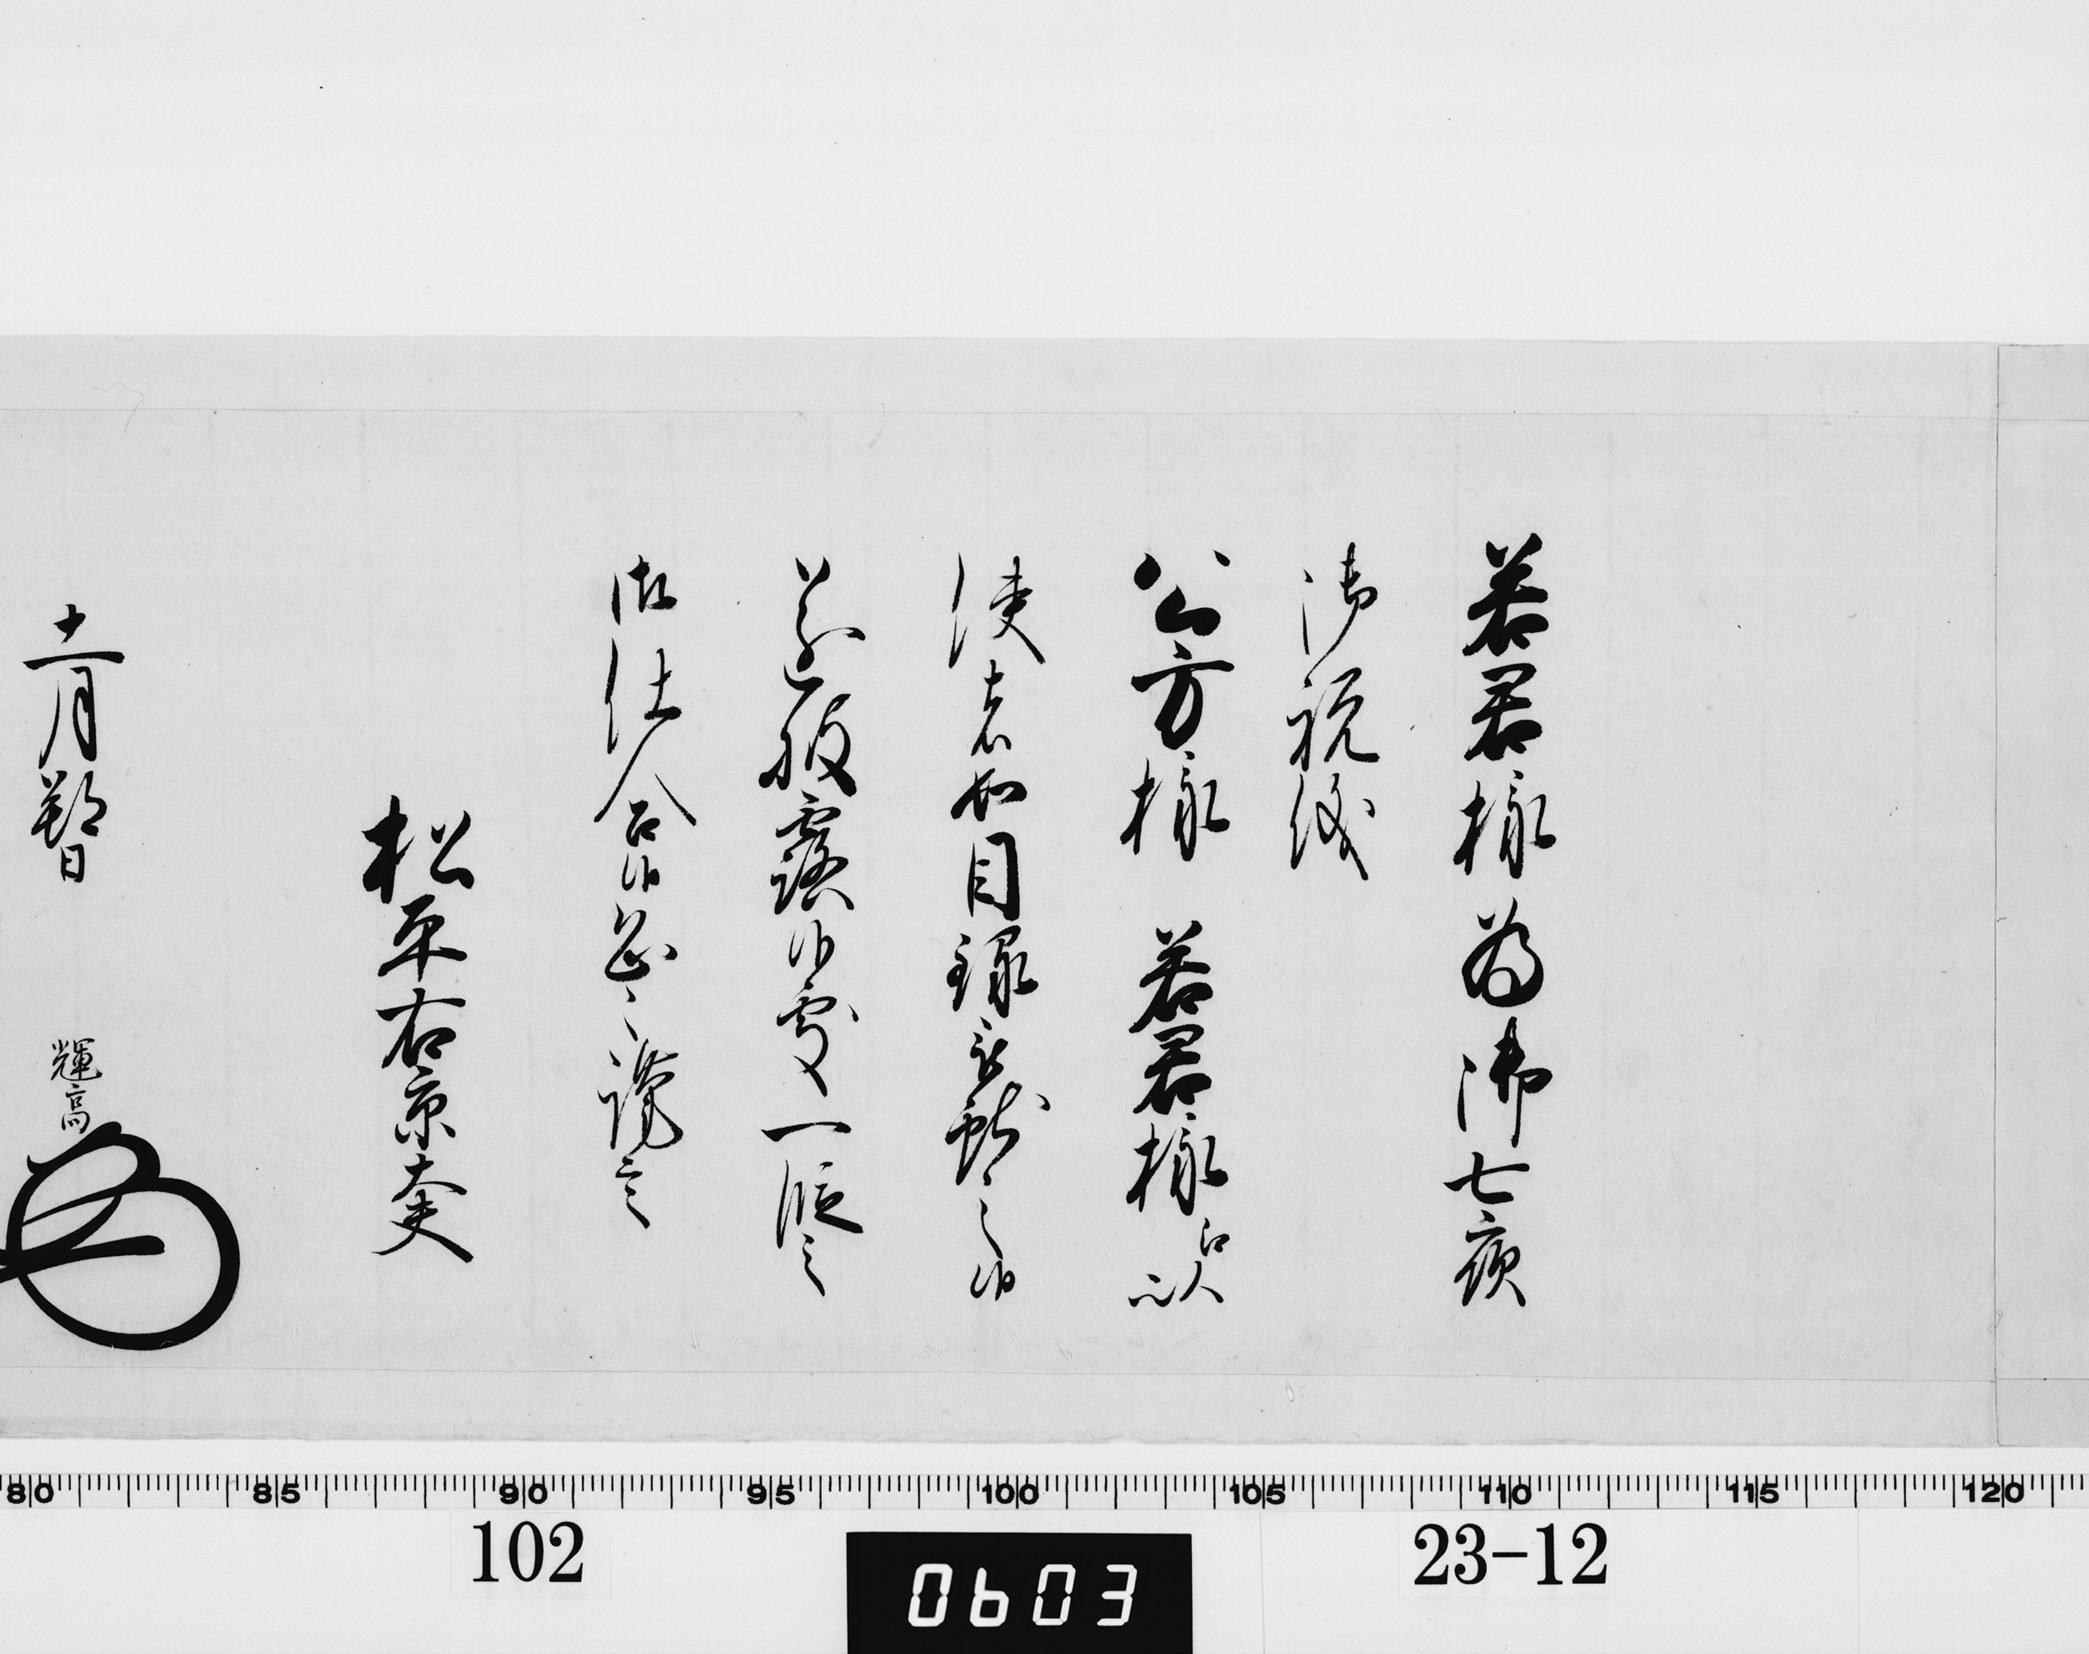 若君様為御七夜
御祝儀
公方様 若君様江以
使者如目録被献之候
遂披露候處一段之
御仕合候恐々謹言
松平右京大夫
十一月朔日
輝高
80 85 90 95 100 105 110 115 120
102
0603
23-12